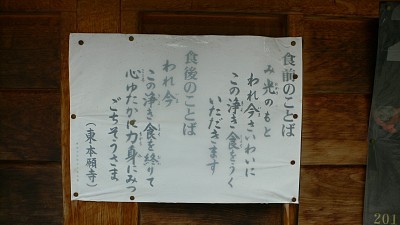 食前のことば
み光のもと
われ今さいわいに
この浄き食をうく
いただきます
食後のことば
われ今
この浄き食を終りて
心ゆたかに力身にみつ
ごちそうさま
(東本願寺)
201